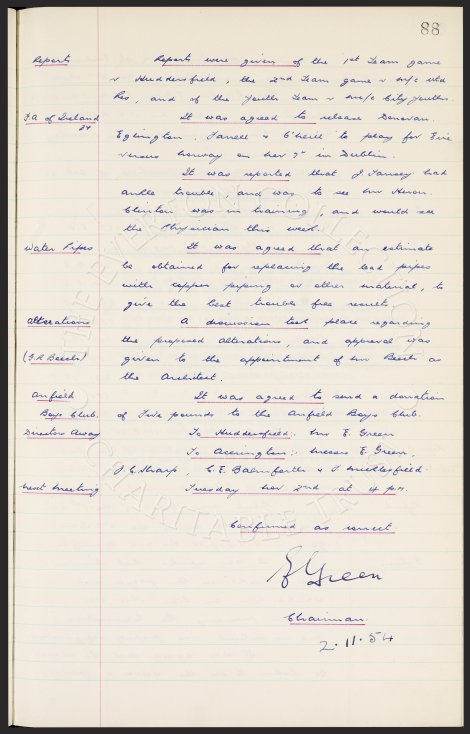 88
Reports Reports were given of the 1st Team game
v Huddersfield, the 2nd Team game v M/c Utd
Res, and of the Youth Team v M/c City Youths.
F.A. of Ireland It was agreed to release Donovan,
Eglington, Farrell & O'Neill to play for Eire
versus Norway on Nov 7th in Dublin.
It was reported that J Tansey had
ankle trouble, and was to see Mr Heron.
Clinton was in training, and would see
the Physician this week.
Water Pipes It was agreed that an estimate
be obtained for replacing the lead pipes
with copper piping or other material, to
give the best trouble free results.
Alterations A discussion took place regarding
the proposed alterations, and approval was
(G.R. Beech) given to the appointment of Mr Beech as
the Architect.
Anfield It was agreed to send a donation
Boys Club. of Five pounds to the Anfield Boys Club.
Directors Away To Huddersfield:- Mr E. Green
To Accrington:- Messrs E. Green,
J.C. Sharp, C.E. Balmforth & F. Micklesfield.
Next Meeting Tuesday Nov 2nd at 4 pm.
Confirmed as correct.
E Green
Chairman.
2.11.54